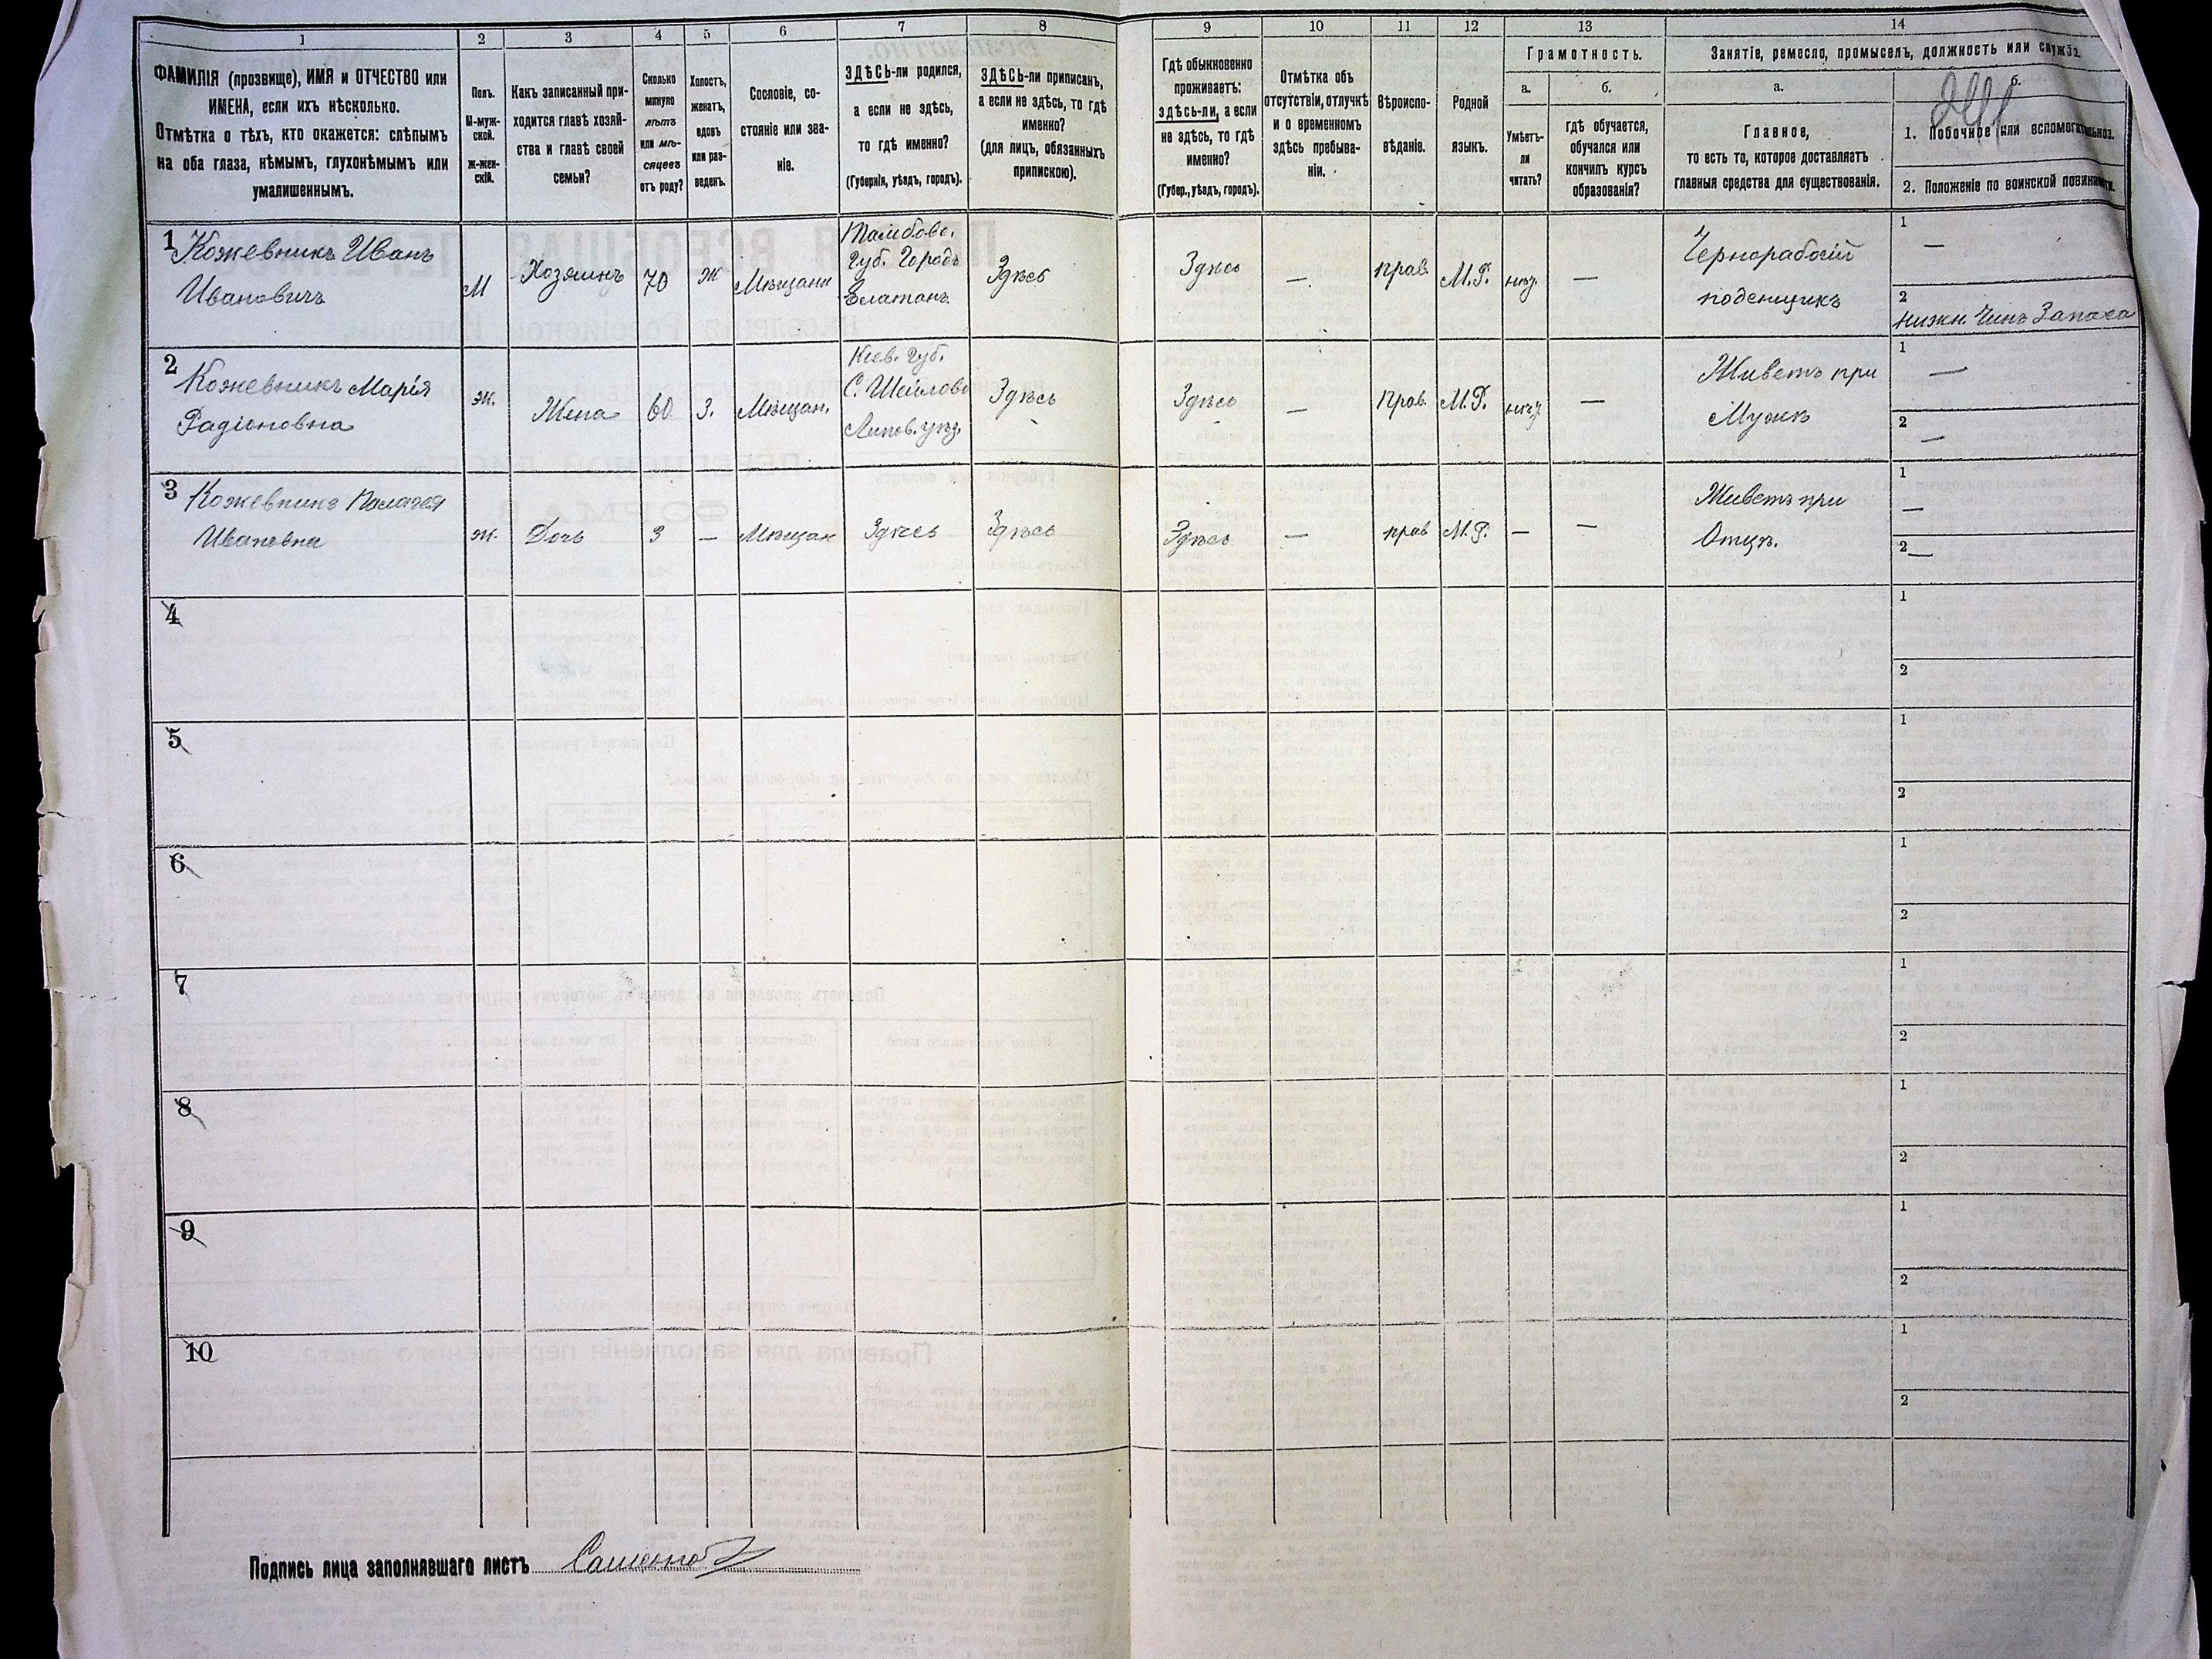 1 2 3 4 5 6 7 8 9 10 11 12 13 14
ФАМИЛІЯ (прозвище), ИМЯ и ОТЧЕСТВО или
ИМЕНА, если ихъ нѣсколько.
Отмѣтка о тѣхъ, кто окажется: слѣпымъ
на оба глаза, нѣмымъ, глухонѣмымъ или
умалишеннымъ.
Полъ.
М-муж-
ской.
Ж-жен-
скій.
Какъ записанный при-
ходится главѣ хозяй-
ства и главѣ своей
семьи?
Сколько
минуло
лѣтъ
или мѣ-
сяцевъ
отъ роду?
Холостъ,
женатъ,
вдовъ
или раз-
веденъ.
Сословіе, со-
стояніе или зва-
ніе.
ЗДѢСЬ-ли родился,
а если не здѣсь,
то гдѣ именно?
(Губернія, уѣздъ, городъ).
ЗДѢСЬ-ли приписанъ,
а если не здѣсь, то гдѣ
именно?
(для лицъ, обязанныхъ
припискою).
Гдѣ обыкновенно
проживаетъ:
здѣсь-ли, а если
не здѣсь, то гдѣ
именно?
(Губер., уѣздъ, городъ).
Отмѣтка объ
отсутствіи, отлучкѣ
и о временномъ
здѣсь пребыва-
ніи.
Вѣроиспо-
вѣданіе.
Родной
языкъ.
Грамотность.
а.
Умѣетъ-
ли
читать?
б.
гдѣ обучается,
обучался или
кончилъ курсъ
образованія?
Занятіе, ремесло, промыселъ, должность или служба.
а.
Главное,
то есть то, которое доставляетъ
главныя средства для существованія.
б.
1. Побочное или вспомогательное.
2. Положеніе по воинской повинности.
1 Кожевникъ Иванъ
Ивановичъ
М
Хозяинъ
70
Ж
Мѣщани
Тамбово.
Губ. Городъ
Елатанъ.
Здѣсь
Здѣсь
—
прав.
М.Р.
—
Чернорабочій
поденщикъ
1
—
2
Нижн. Чинъ Запаса
2 Кожевникъ Марія
Радіоновна
ж.
Жена
60
З.
Мѣщан.
Кіев. Губ.
Липов. уѣз.
Здѣсь
Здѣсь
—
Прав.
М.Р.
—
Живетъ при
Мужѣ
1
—
2
—
3 Кожевникъ Палагея
Ивановна
ж.
Дочь
3
—
Мѣщан
Здѣсь
Здѣсь
Здѣсь
—
прав
М.Р.
—
—
Живетъ при
Отцѣ.
1
—
2
—
4
1
2
5
1
2
6
1
2
7
1
2
8
1
2
9
1
2
10
1
2
Подпись лица заполнявшаго листъ